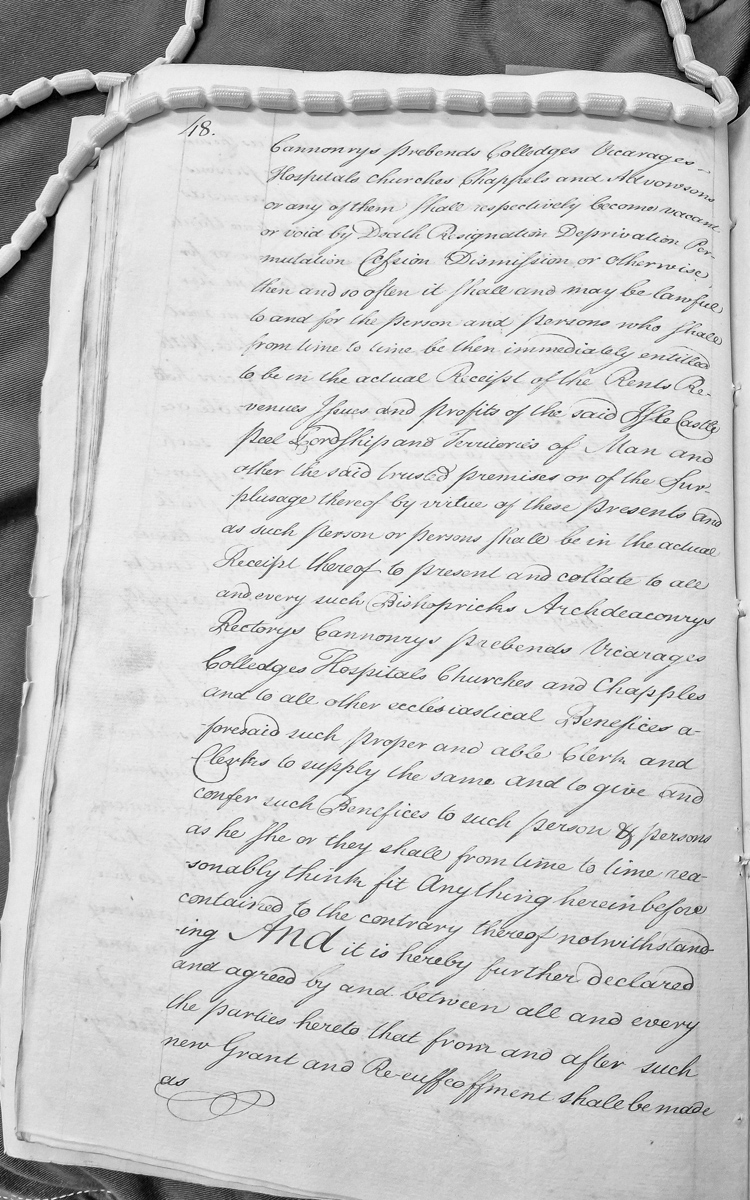 /18.
Cannonrys prebends Colledges Vicarages
Hospitals Churches Chappels and Advowsons
or any of them shall respectively become vacant
or void by Death Resignation Deprivation Per-
mutation Cession Dismission or otherwise
then and so often it shall and may be lawful
to and for the person and persons who shall
from time to time be then immediately entitled
to be in the actual Receipt of the Rents Re-
venues Issues and profits of the said Isle Castle
Peel Lordship and Territories of Man and
other the said trusted premises or of the Sur-
plusage thereof by virtue of these presents and
as such person or persons shall be in the actual
Receipt thereof to present and collate to all
and every such Bishopricks Archdeaconrys
Rectorys Cannonrys prebends Vicarages
Colledges Hospitals Churches and Chapples
and to all other ecclesiastical Benefices a-
foresaid such proper and able Clerk and
Clerks to supply the same and to give and
confer such Benefices to such person & persons
as he she or they shall from time to time rea-
sonably think fit Any thing herein before
contained to the contrary thereof notwithstand-
-ing And it is hereby further declared
and agreed by and between all and every
the parties hereto that from and after such
new Grant and Re-enffeoffment shall be made
as